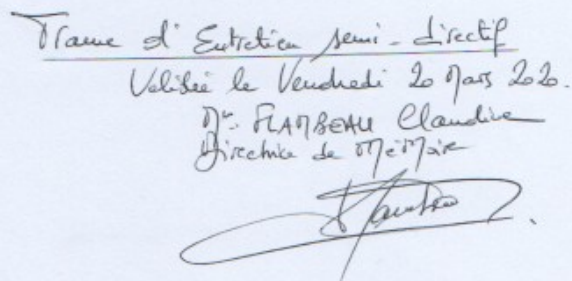 Trame d'Entretien semi-directif
Validée le Vendredi 20 Mars 2020.
FLAMBEAU Claudine
Directrice de Mémoire